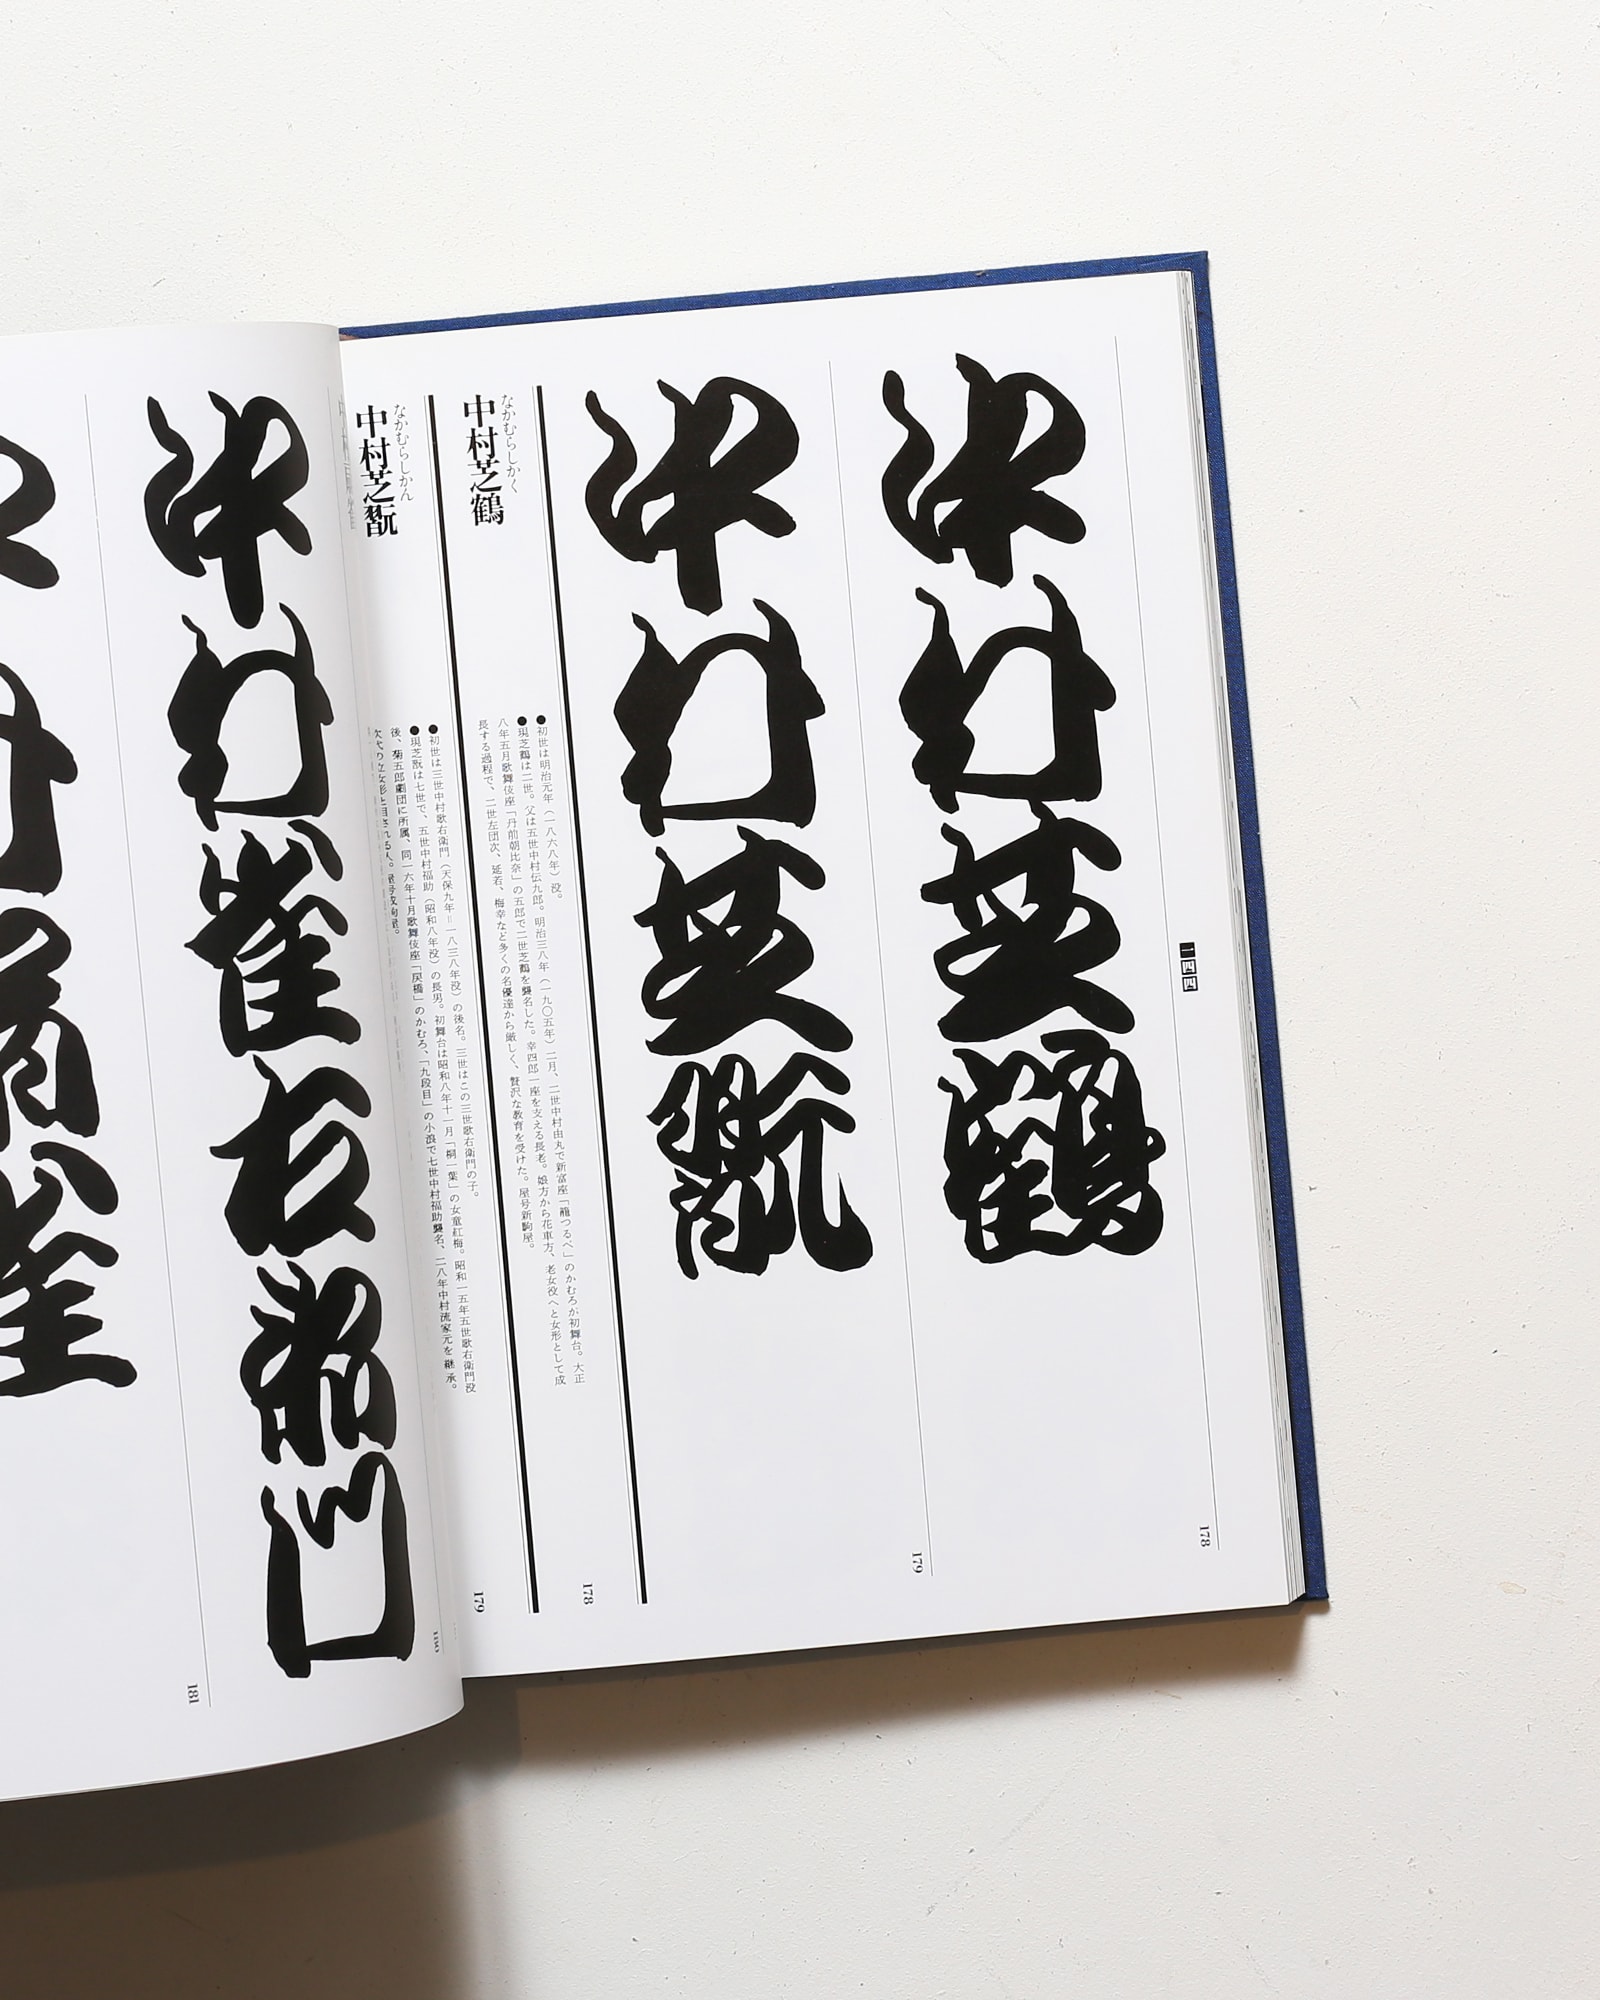 一四四
178
中村芝鶴
179
中村芝翫
178
なかむらしかく
中村芝鶴
●初世は明治元年（一八六八年）没。
●現芝鶴は二世。父は五世中村伝九郎。明治三八年（一九〇五年）二月、二世中村由丸で新富座「籠つるべ」のかむろが初舞台。大正
八年五月歌舞伎座「丹前朝比奈」の五郎で二世芝鶴を襲名した。幸四郎一座を支える長老。娘方から花車方、老女役へと女形として成
長する過程で、二世左団次、延若、梅幸など多くの名優達から厳しく、贅沢な教育を受けた。屋号新駒屋。
179
なかむらしかん
中村芝翫
●初世は三世中村歌右衛門（天保九年＝一八三八年没）の後名。三世はこの三世歌右衛門の子。
●現芝翫は七世で、五世中村福助（昭和八年没）の長男。初舞台は昭和八年十一月「桐一葉」の女童紅梅。昭和一五年五世歌右衛門没
後、菊五郎劇団に所属、同一六年十月歌舞伎座「戻橋」のかむろ、「九段目」の小浪で七世中村福助襲名、二八年中村流家元を継承。
次代の立女形と目される人。屋号成駒屋。
180
中村雀右衛門
181